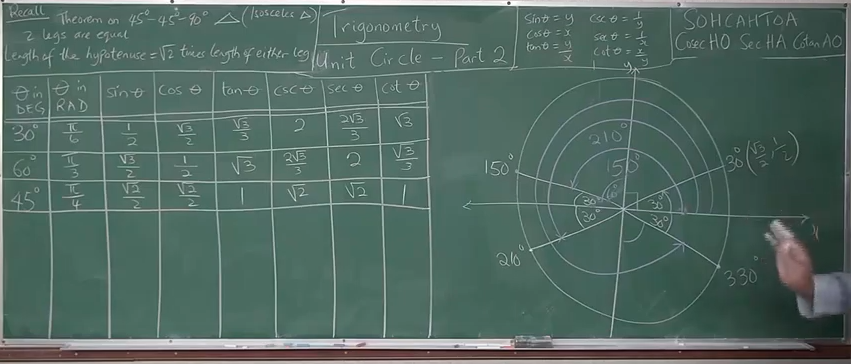 Recall Theorem on 45°-45°-90° △ (Isosceles △)
2 legs are equal
Length of the hypotenuse = √2 times length of either leg
Trigonometry
Unit Circle - Part 2
sin θ = y csc θ = 1/y
cos θ = x sec θ = 1/x
tan θ = y/x cot θ = x/y
SOHCAHTOA
CosecHO SecHA CotanAO
θ in DEG θ in RAD sin θ cos θ tan θ csc θ sec θ cot θ
30° π/6 1/2 √3/2 √3/3 2 2√3/3 √3
60° π/3 √3/2 1/2 √3 2√3/3 2 √3/3
45° π/4 √2/2 √2/2 1 √2 √2 1
y
210°
150°
150°
30° (√3/2, 1/2)
30° 60° 30°
30° 30°
x
210°
330°